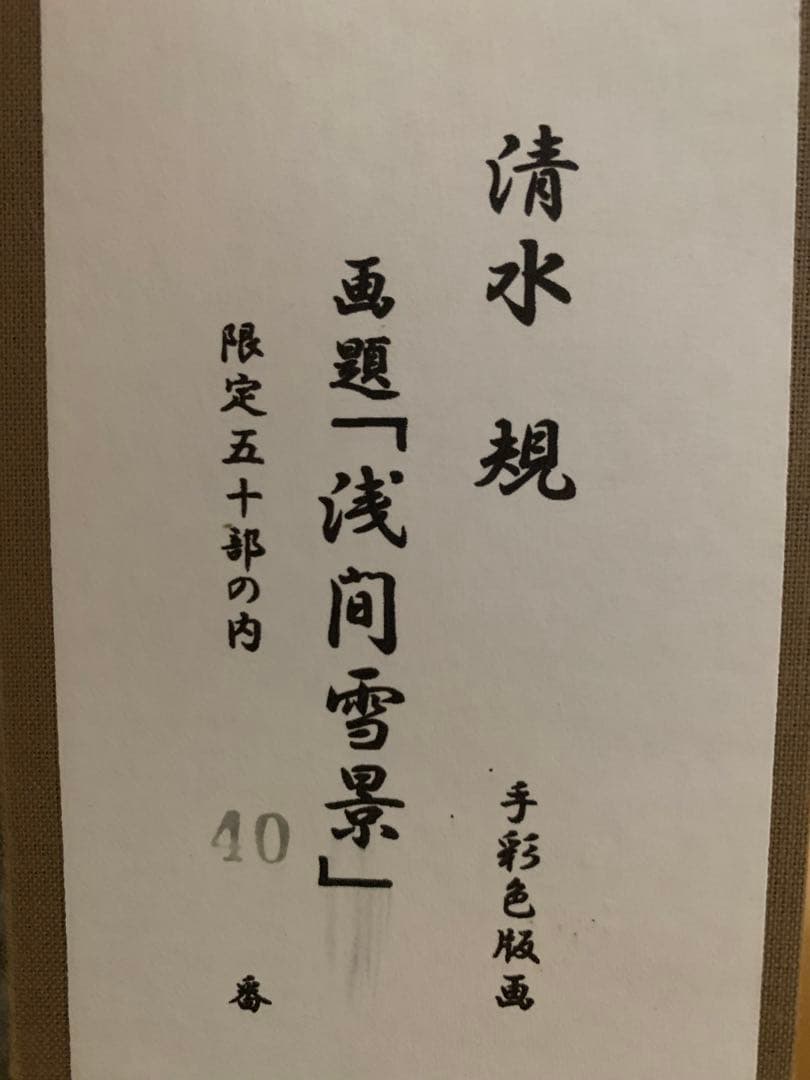 清水 規 手彩色版画
画題「浅間雪景」
限定五十部の内 40 番